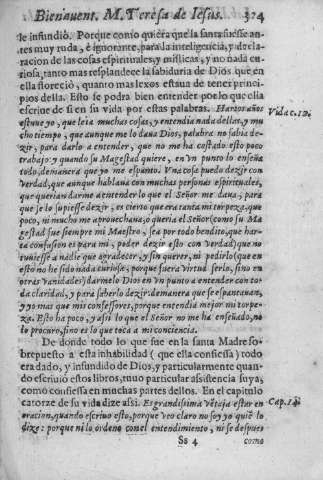 Bienauent. M. Teresa de Iesus. 324
le infundiò. Porque como quiera que la santa fuesse an-
tes muy ruda, è ignorante, para la inteligencia, y decla-
racion de las cosas espirituales, y misticas, y no nada cu-
riosa, tanto mas resplandece la sabiduria de Dios que en
ella floreciò, quanto mas lexos estaua de tener princi-
pios della. Esto se podra bien entender por lo que ella
escriue de si en su vida por estas palabras. Hartos años
estuue yo, que leia muchas cosas, y entendia nada dellas, y mu
cho tiempo, que aunque me lo daua Dios, palabra no sabia de-
zir, para darlo a entender, que no me ha costado esto poco
trabajo: y quando su Magestad quiere, en vn punto lo enseña
todo, demanera que yo me espanto. Vna cosa puedo dezir con
verdad, que aunque hablaua con muchas personas espirituales,
que querian darme a entender lo que el Señor me daua, para
que je lo supiesse dezir, es cierto que era tanta mi torpeza, que
poco, ni mucho me aprouechaua; o queria el Señor (como su Ma
gestad fue siempre mi Maestro, sea por todo bendito, que har-
ta confusion es para mi, poder dezir esto con verdad) que no
tuuiesse a nadie que agradecer, y sin querer, ni pedirlo (que en
esto no he sido nada curiosa, porque fuera virtud serlo, sino en
otras vanidades) darmelo Dios en vn punto a entender con to-
da claridad, y para saberlo dezir: demanera que se espantauan,
y yo mas que mis confessores, porque entendia mejor mi torpe-
za. Esto ha poco, y assi lo que el Señor no me ha enseñado, no
lo procuro, sino es lo que toca a mi conciencia.
Vida c. 12.
De donde todo lo que fue en la santa Madre so-
brepuesto a esta inhabilidad ( que ella confiessa ) todo
era dado, y infundido de Dios, y particularmente quan-
do escriuiò estos libros, tuuo particular assistencia suya,
como confiessa en muchas partes dellos. En el capitulo
catorze de su vida dize assi. Es grandissima vẽtaja estar en
oracion, quando escriuo esto, porque veo claro no soy yo quiẽ lo
dize: porque ni lo ordeno con el entendimiento, ni se despues
Cap. 14.
Ss 4 como